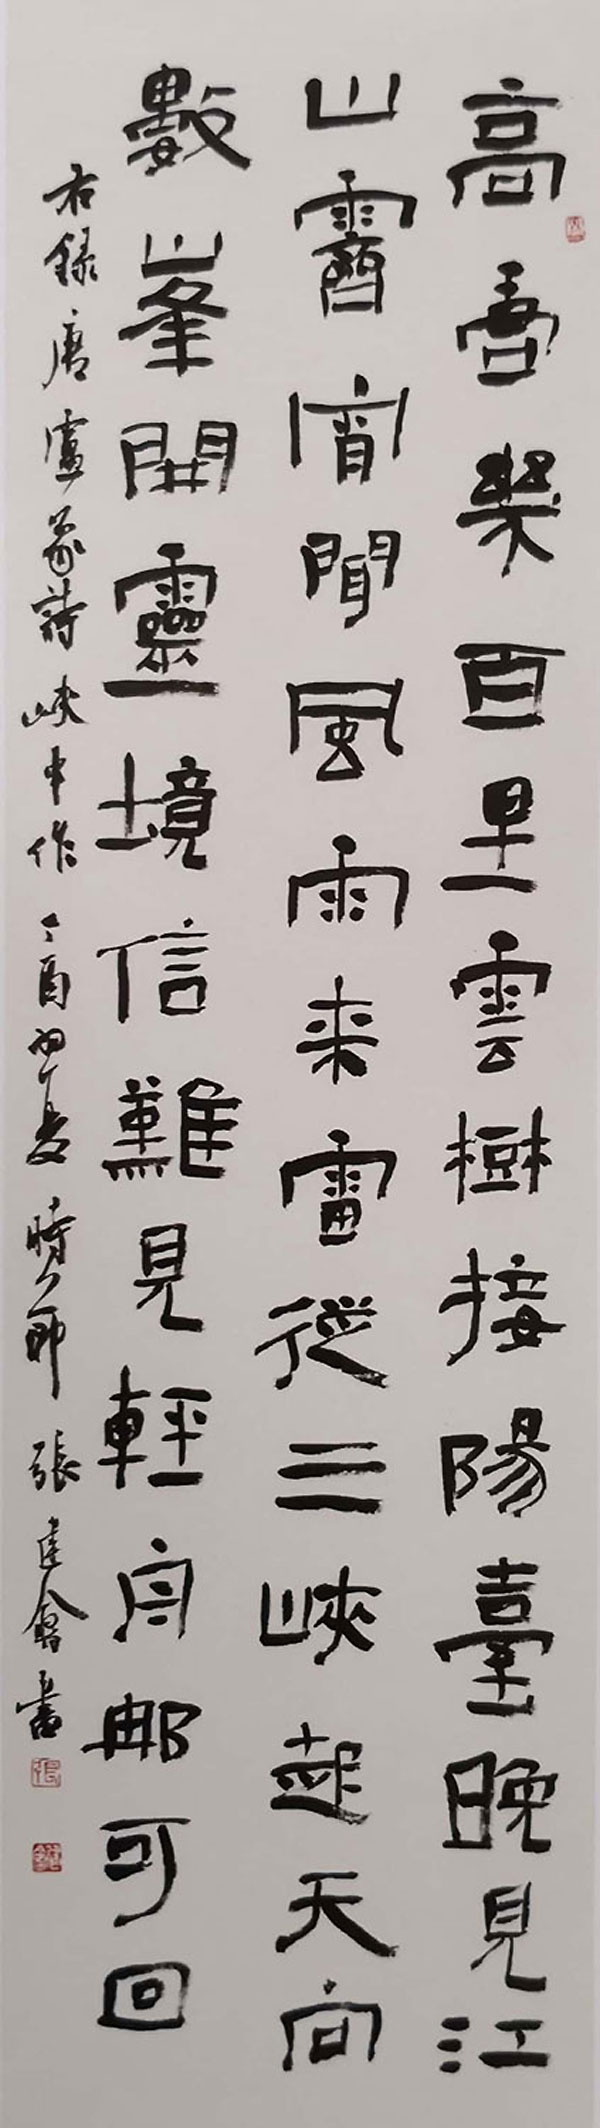 高唐幾百里雲樹接陽臺晚見江
山霽宵聞風雨来雷從三峽起天向
數峯開靈境信難見輕舟那可回
右録唐盧象詩峽中作 丁酉初夏時節 張建會書